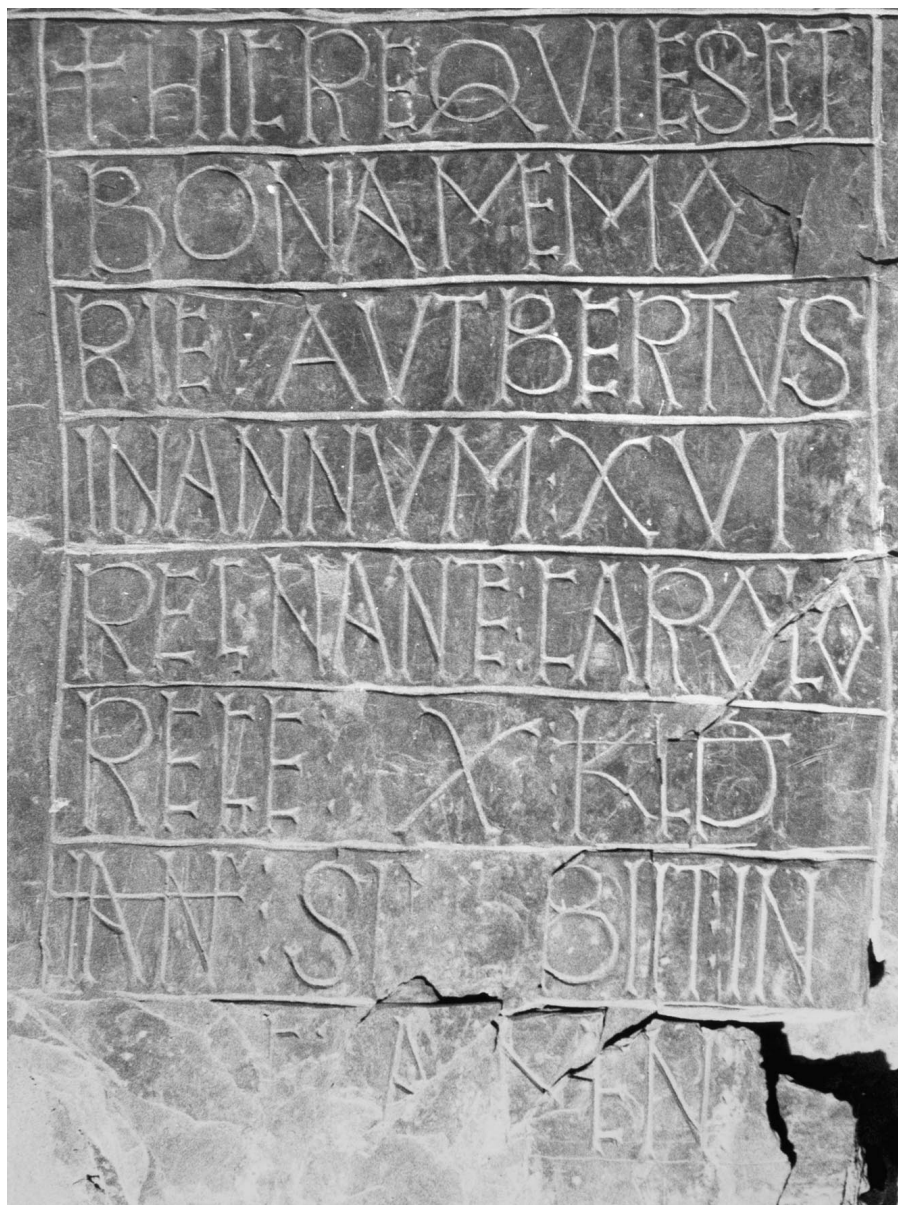 + HIC REQVIESCIT
BONA MEMO
RIE : AVTBERTVS
IN ANNVM : XVI
REGNANE : CAROLO
REGE : X : KLD
IAN : S
AMEN